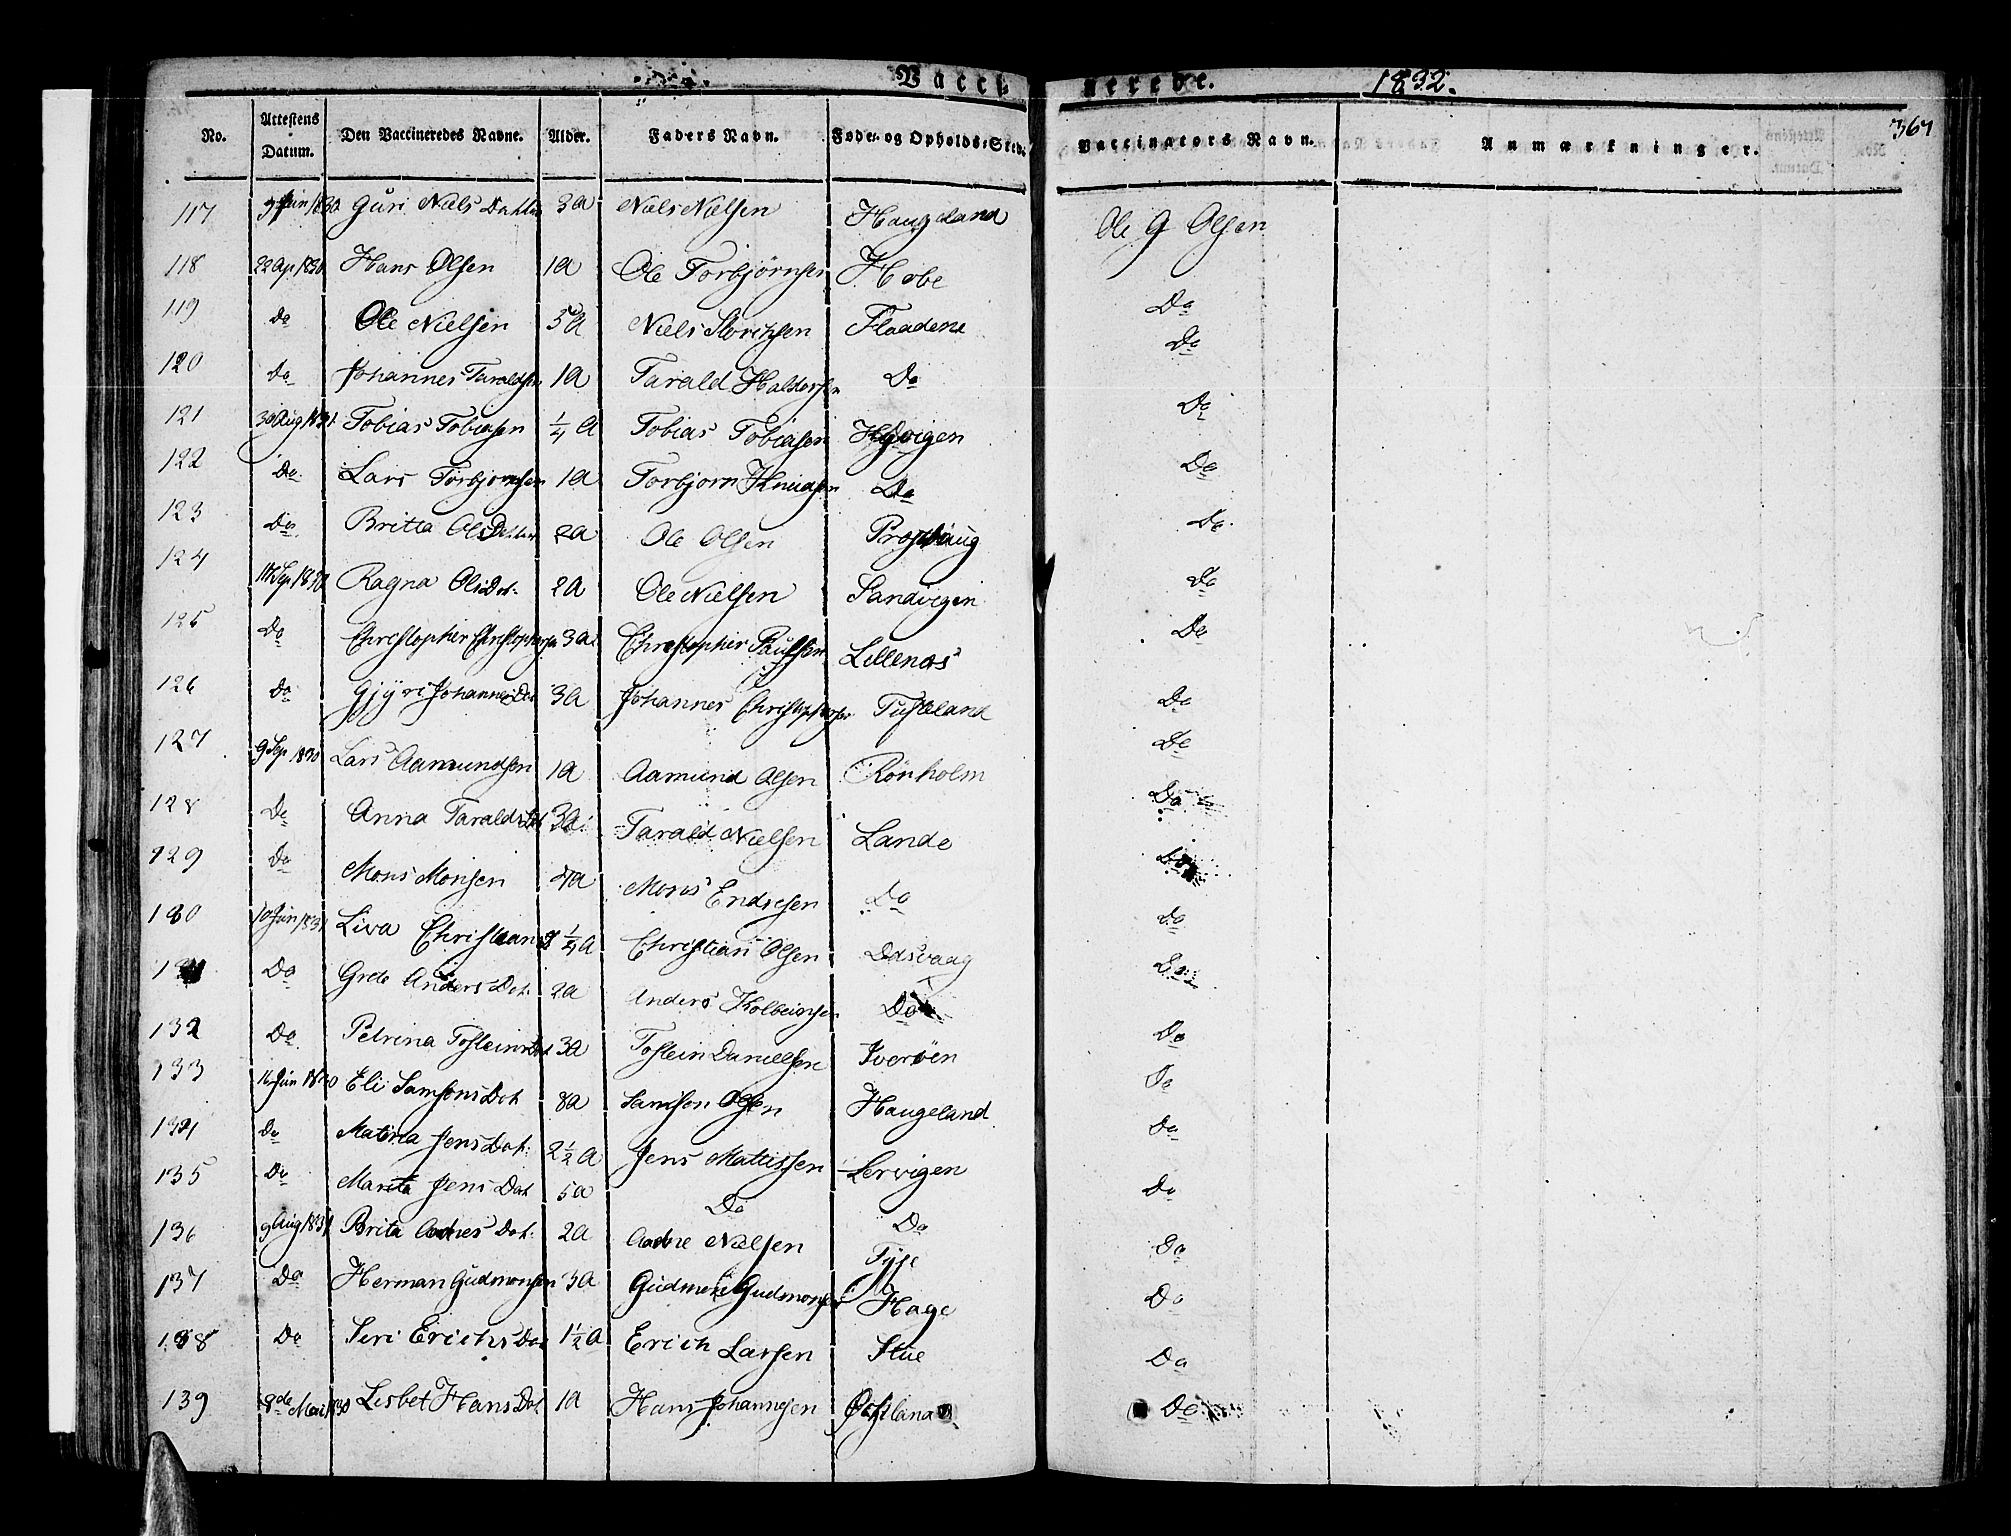 Vacci- nerede. 1832.
367
No. Attestens Datum. Den Vaccineredes Navne. Alder. Faders Navn. Føde- og Opholds-Sted. Vaccinators Navn. Anmærkninger.
117 9 Jun 1830 Guri Niels Dahter 3 A Niels Nielsen Haugeland Ole G Olsen
118 22 Ap 1830 Hans Olsen 1 A Ole Torbjörnsen Hope Do
119 Do Ole Nielsen 5 A Niels Flaadene Do
120 Do Johannes Taraldsen 1 A Tarald Haldorsen Do Do
121 30 Aug 1831 Tobias Tobiasen 1/4 A Tobias Tobiasen Do
122 Do Lars Torbjornsen 1 A Torbjorn Knudsen Do Do
123 Do Britta Ols Datter 2 A Ole Olsen Do
124 Sep 1830 Ragna Ols Dat. 2 A Ole Nielsen Sandvigen Do
125 Do Christopher Christophersen 3 A Christopher Paulsen Lillenæs Do
126 Do Gjyri Johannes Dat 3 A Johannes Christophersen Tufteland Do
127 9 Sep 1830 Lars Aamundsen 1 A Aamund Olsen Rönholm Do
128 Do Anna Taralds Dat 3 A Tarald Nielsen Lande Do
129 Do Mons Monsen 4 A Mons Endresen Do Do
130 10 Jun 1831 Liva Christians 1/4 A Christian Olsen Odsvaag Do
131 Do Grete Anders Dat. 2 A Anders Kolbeinsen Do Do
132 Do Petrina Tosteins Dat 3 A Tostein Danielsen Iveröen Do
133 16 Jun 1830 Eli Samsons Dat 8 A Samson Olsen Haugeland Do
134 Do Matena Jens Dat. 2 1/2 A Jens Mattissen Lervigen Do
135 Do Mareta Jens Dat 5 A Do Do Do
136 9 Aug 1831 Brita Aadnes Dat. 2 A Aadne Nielsen Do
137 Do Herman Gudmonsen 3 A Gudmon Gudmonsen Hage Do
138 Do Seri Erichs Dat 1 1/2 A Erich Larsen Stue Do
139 8de Mai 1830 Lisbet Hans Dat 1 A Hans Johannesen Do